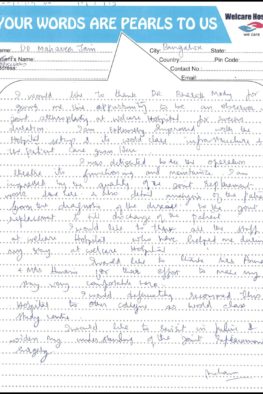 YOUR WORDS ARE PEARLS TO US
Welcare Hos
we care
Name: Dr Mahaveer Jain City: Bangalore State:
Patient's Name Country: Pin Code:
Address: Contact No :
Email :
I would like to thank Dr Bharat Mody for
giving me the opportunity to be an observer in
joint arthroplasty at welcare Hospital for
duration. I am extremely impressed with the
Hospital setup & its world class infrastructure &
the patient care given here.
I was delighted to see the operation
theatre its functioning and maintenance. I am
impressed by the quality of the joint Replacement
work done here & the detail analysis of the patient
from the diagnosing of the disease to the joint
replacement & till discharge of the patient.
I would like to thank all the staff
at welcare Hospital who have helped me during
my stay at welcare Hospital.
I would like to thank Mrs
& Mrs for their effort to make my
stay very comfortable here.
I would definitely recommend this
Hospital to other collegues as world class
study centre.
I would like to revisit in future &
widen my understanding of the Joint Replacement
surgery.